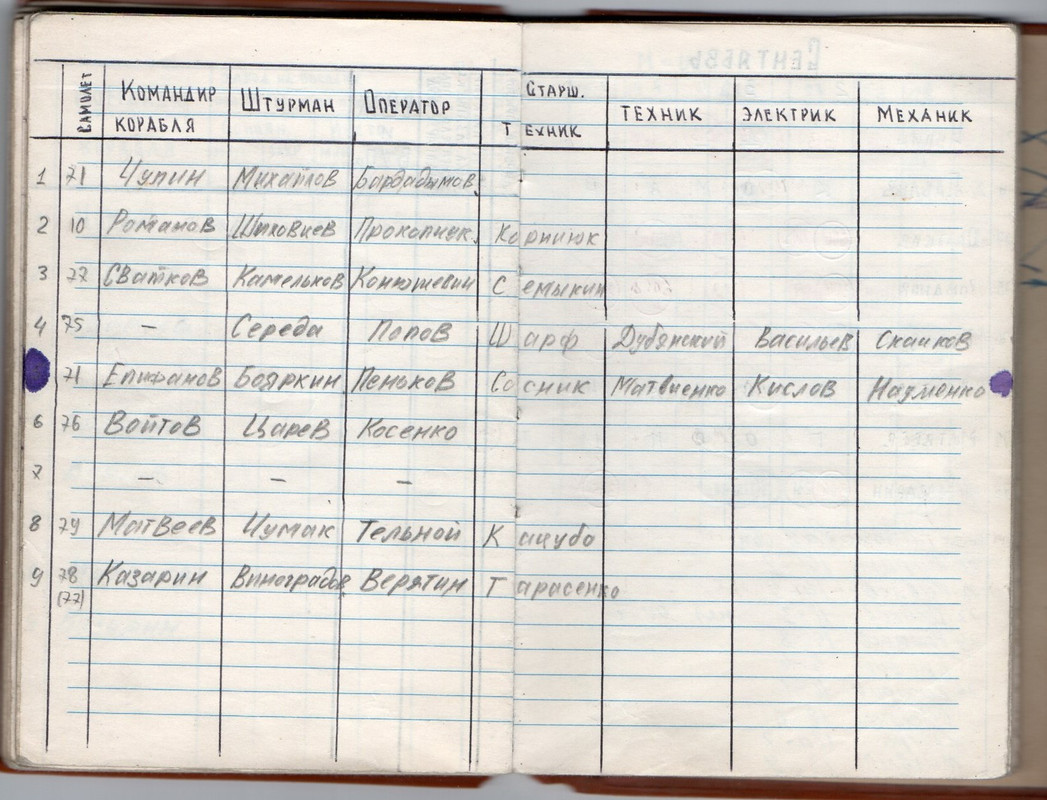 Самолет Командир корабля Штурман Оператор Старш. техник техник электрик Механик
1 71 Чупин Михайлов
2 10 Романов Шиховцев Корнюк
3 77 Сватков Камельков Конюшевич Семыкин
4 75 – Середа Попов Шарф Дубянский Васильев Скачков
71 Епифанов Бояркин Пеньков Сосник Матвиенко Кислов Науменко
6 76 Войтов Царев Косенко
7 – – –
8 79 Матвеев Чумак Тельной Кацубо
9 78 Казарин Виноградов Верятин Тарасенко
(77)